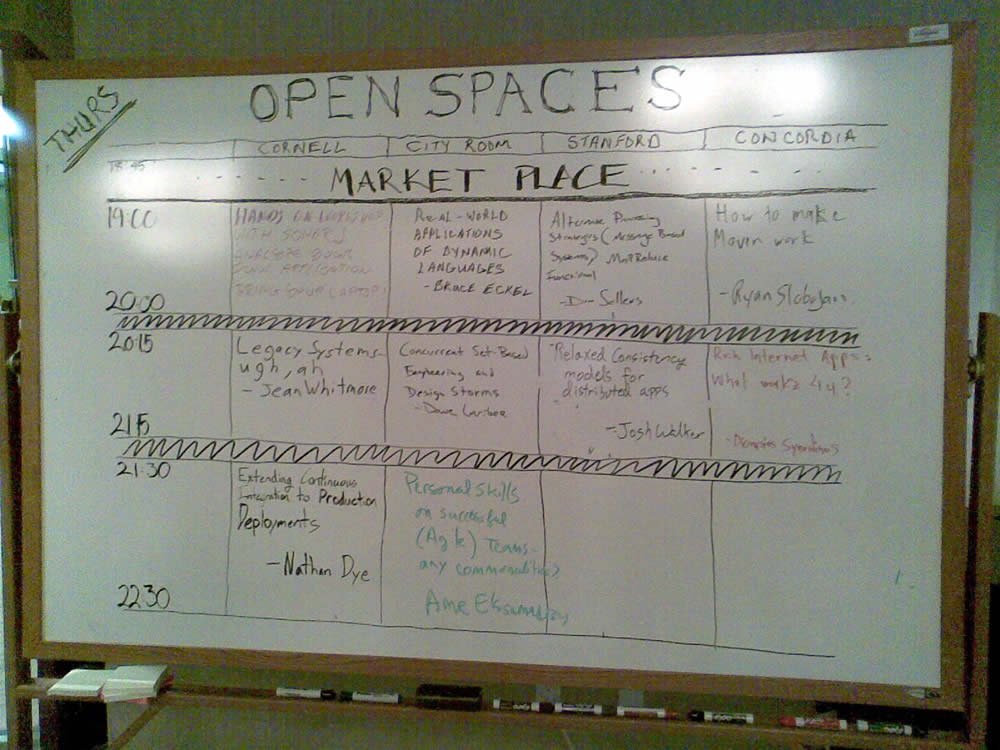 THURS
OPEN SPACES
CORNELL
CITY ROOM
STANFORD
CONCORDIA
18:45
MARKET PLACE
19:00
HANDS ON
WITH
APPLICATION
BRING YOUR LAPTOP!
REAL-WORLD
APPLICATIONS
OF DYNAMIC
LANGUAGES
- BRUCE ECKEL
Alternate Processing
Strategies (Message Based
Systems) MapReduce
Functional
- Dan Sellers
How to make
Maven work
- Ryan Slobojan
20:00
20:15
Legacy Systems-
ugh, ah
- Jean Whitmore
Concurrent Set-Based
Engineering and
Design Storms
- Dave Laribee
"Relaxed Consistency
models for
distributed apps
- Josh Walker
Rich Internet Apps:
What make 4 u?
21:15
21:30
Extending Continuous
Integration to Production
Deployments
- Nathan Dye
Personal Skills
on successful
(Agile) Teams-
any commonalities?
22:30